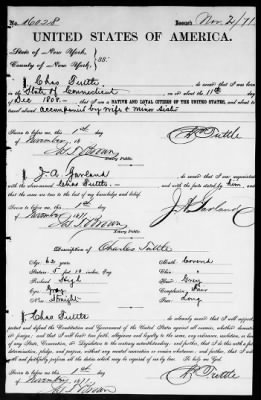 No. 16028 Issued Nov 2/71
UNITED STATES OF AMERICA.
State of New York,
County of New York, ss.
I, Chas Tuttle do swear that I was born
in the State of Connecticut on or about the 11th day
of Dec 1808, that I am a NATIVE AND LOYAL CITIZEN OF THE UNITED STATES, and about to
travel abroad accompanied by wife & minor sister
Sworn to before me this 1st
day of November, 18
Notary Public.
Tuttle
I, J. A. Garland do swear that I am acquainted
with the above-named Chas Tuttle and with the facts stated by him, and
that the same are true to the best of my knowledge and belief.
Sworn to before me this 1st
day of November 1871
Notary Public.
J. A. Garland
Description of Charles Tuttle
Age: 62 years
Stature: 5 feet 10 inches, Eng.
Forehead: High
Eyes: Gray
Nose: Straight
Mouth:
Chin:
Hair: Grey
Complexion:
Face: Long
I, Chas Tuttle do solemnly swear that I will support,
protect and defend the Constitution and Government of the United States against all enemies, whether domestic
or foreign, and that I will bear true faith, allegiance and loyalty to the same, any ordinance, resolution or law
of any State, Convention or Legislature to the contrary notwithstanding; and further, that I do this with a full
determination, pledge, and purpose, without any mental reservation or evasion whatsoever; and further, that I will
well and faithfully perform all the duties which may be required of me by law. So help me God.
Sworn to before me this 1st
day of November 1871
Tuttle